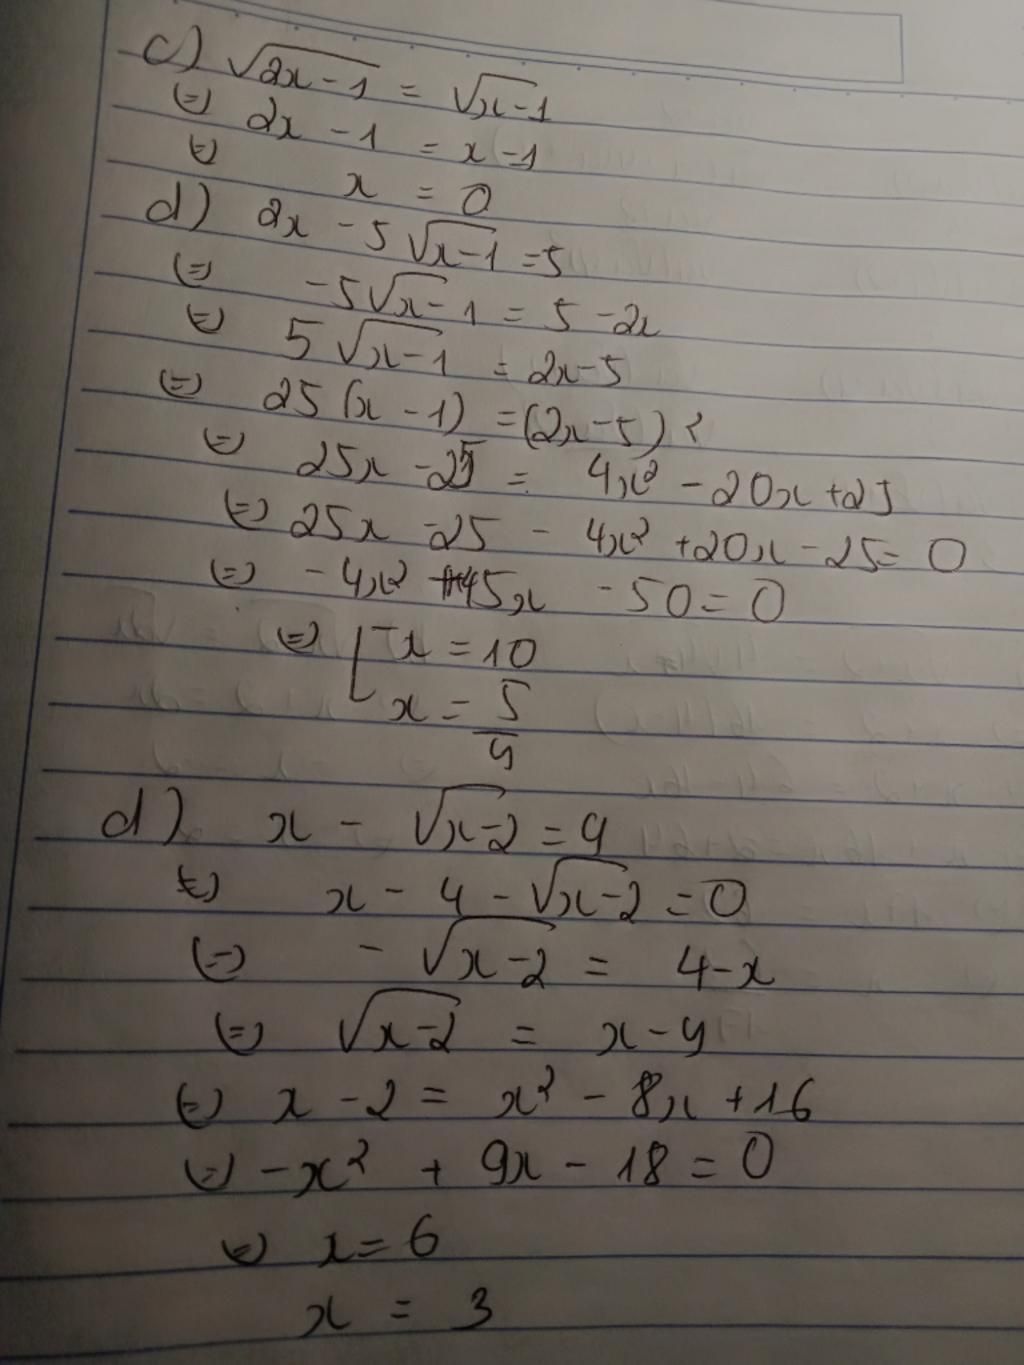 c) √2x-1 = √x-1
(=) 2x - 1 = x - 1
(=) x = 0
d) 2x - 5√x-1 = 5
(=) -5√x-1 = 5 - 2x
(=) 5√x-1 = 2x-5
(=) 25(x - 1) = (2x-5)²
(=) 25x - 25 = 4x² - 20x + 25
(=) 25x - 25 - 4x² + 20x - 25 = 0
(=) - 4x² + 45x - 50 = 0
(=) [ x = 10
x = 5/4
d) x - √x-2 = 4
(=) x - 4 - √x-2 = 0
(=) - √x-2 = 4-x
(=) √x-2 = x-4
(=) x - 2 = x² - 8x + 16
(=) -x² + 9x - 18 = 0
(=) x = 6
x = 3